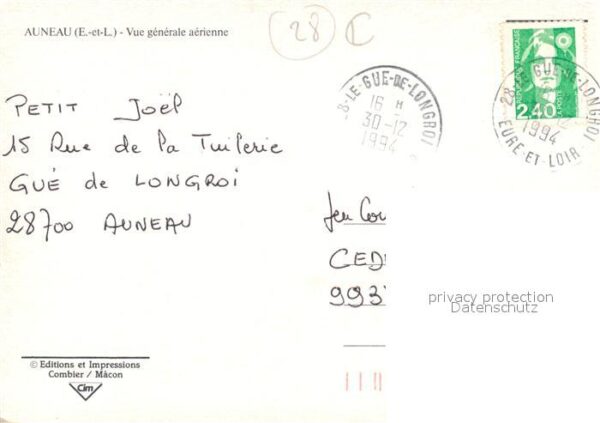 AUNEAU (E.-et-L.) - Vue générale aérienne
28
28-LE GUE-DE-LONGROI
16 H
30-12
1994
RÉPUBLIQUE FRANÇAISE
2,40
LA POSTE
28-LE GUE-DE-LONGROI
1994
EURE-ET-LOIR
PETIT Joël
15 Rue de la Tuilerie
GUÉ de LONGROI
28700 AUNEAU
Jeu
CED
993
privacy protection
Datenschutz
© Editions et Impressions
Combier / Mâcon
Cim